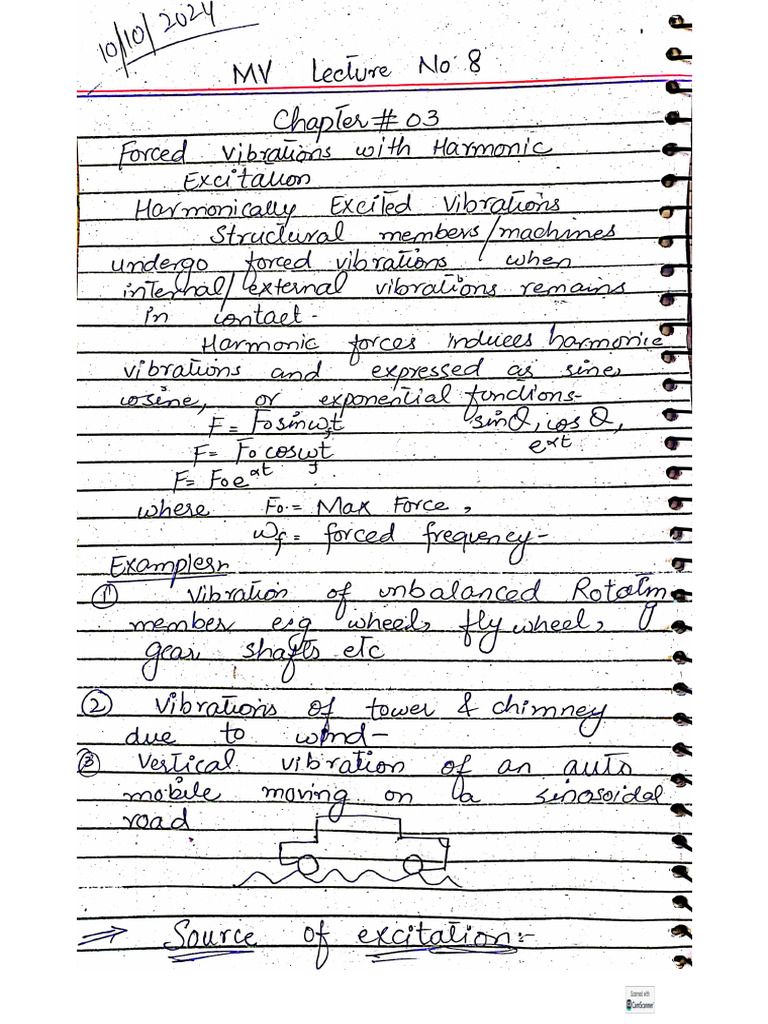 10/10/2024
MV Lecture No: 8
Chapter # 03
Forced Vibrations with Harmonic
Excitation
Harmonically Excited Vibrations
Structural members/machines
undergo forced vibrations when
internal/external vibrations remains
in contact.
Harmonic forces induces harmonic
vibrations and expressed as sine,
cosine, or exponential functions.
F = F₀ sinω_f t sinθ, cosθ,
F = F₀ cosω_f t e^αt
F = F₀ e^αt
where F₀ = Max Force,
ω_f = forced frequency-
Examples:-
① Vibration of unbalanced Rotating
member e.g wheel, fly wheel,
gear, shafts etc
② Vibrations of tower & chimney
due to wind-
③ Vertical vibration of an auto
mobile moving on a sinosoidal
road
⇒ Source of excitation:-
Scanned with
CamScanner